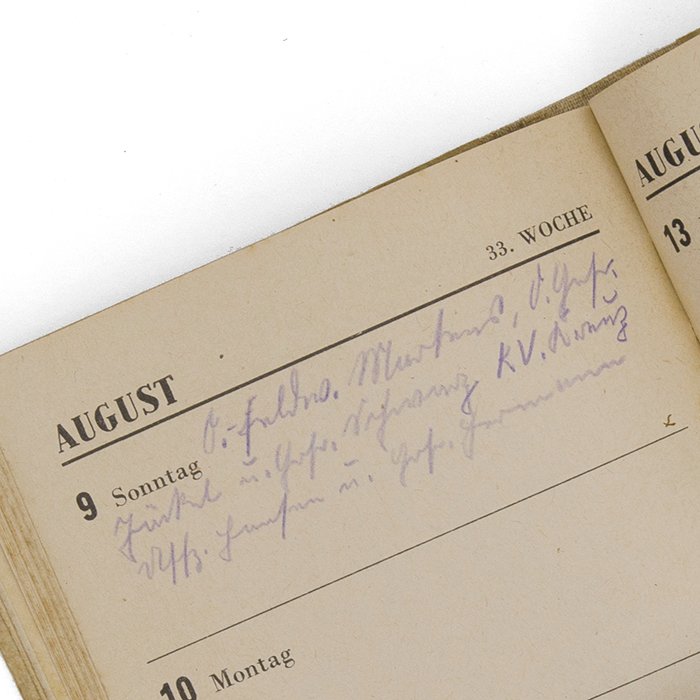 33. WOCHE
AUGUST
O.-Feldw. Martens, O.Gefr.
9 Sonntag
Jäckel u. Gefr. Schwarz KV. Kreuz
Uffz. Hansen u. Gefr. Hermann
10 Montag
AUGU
13